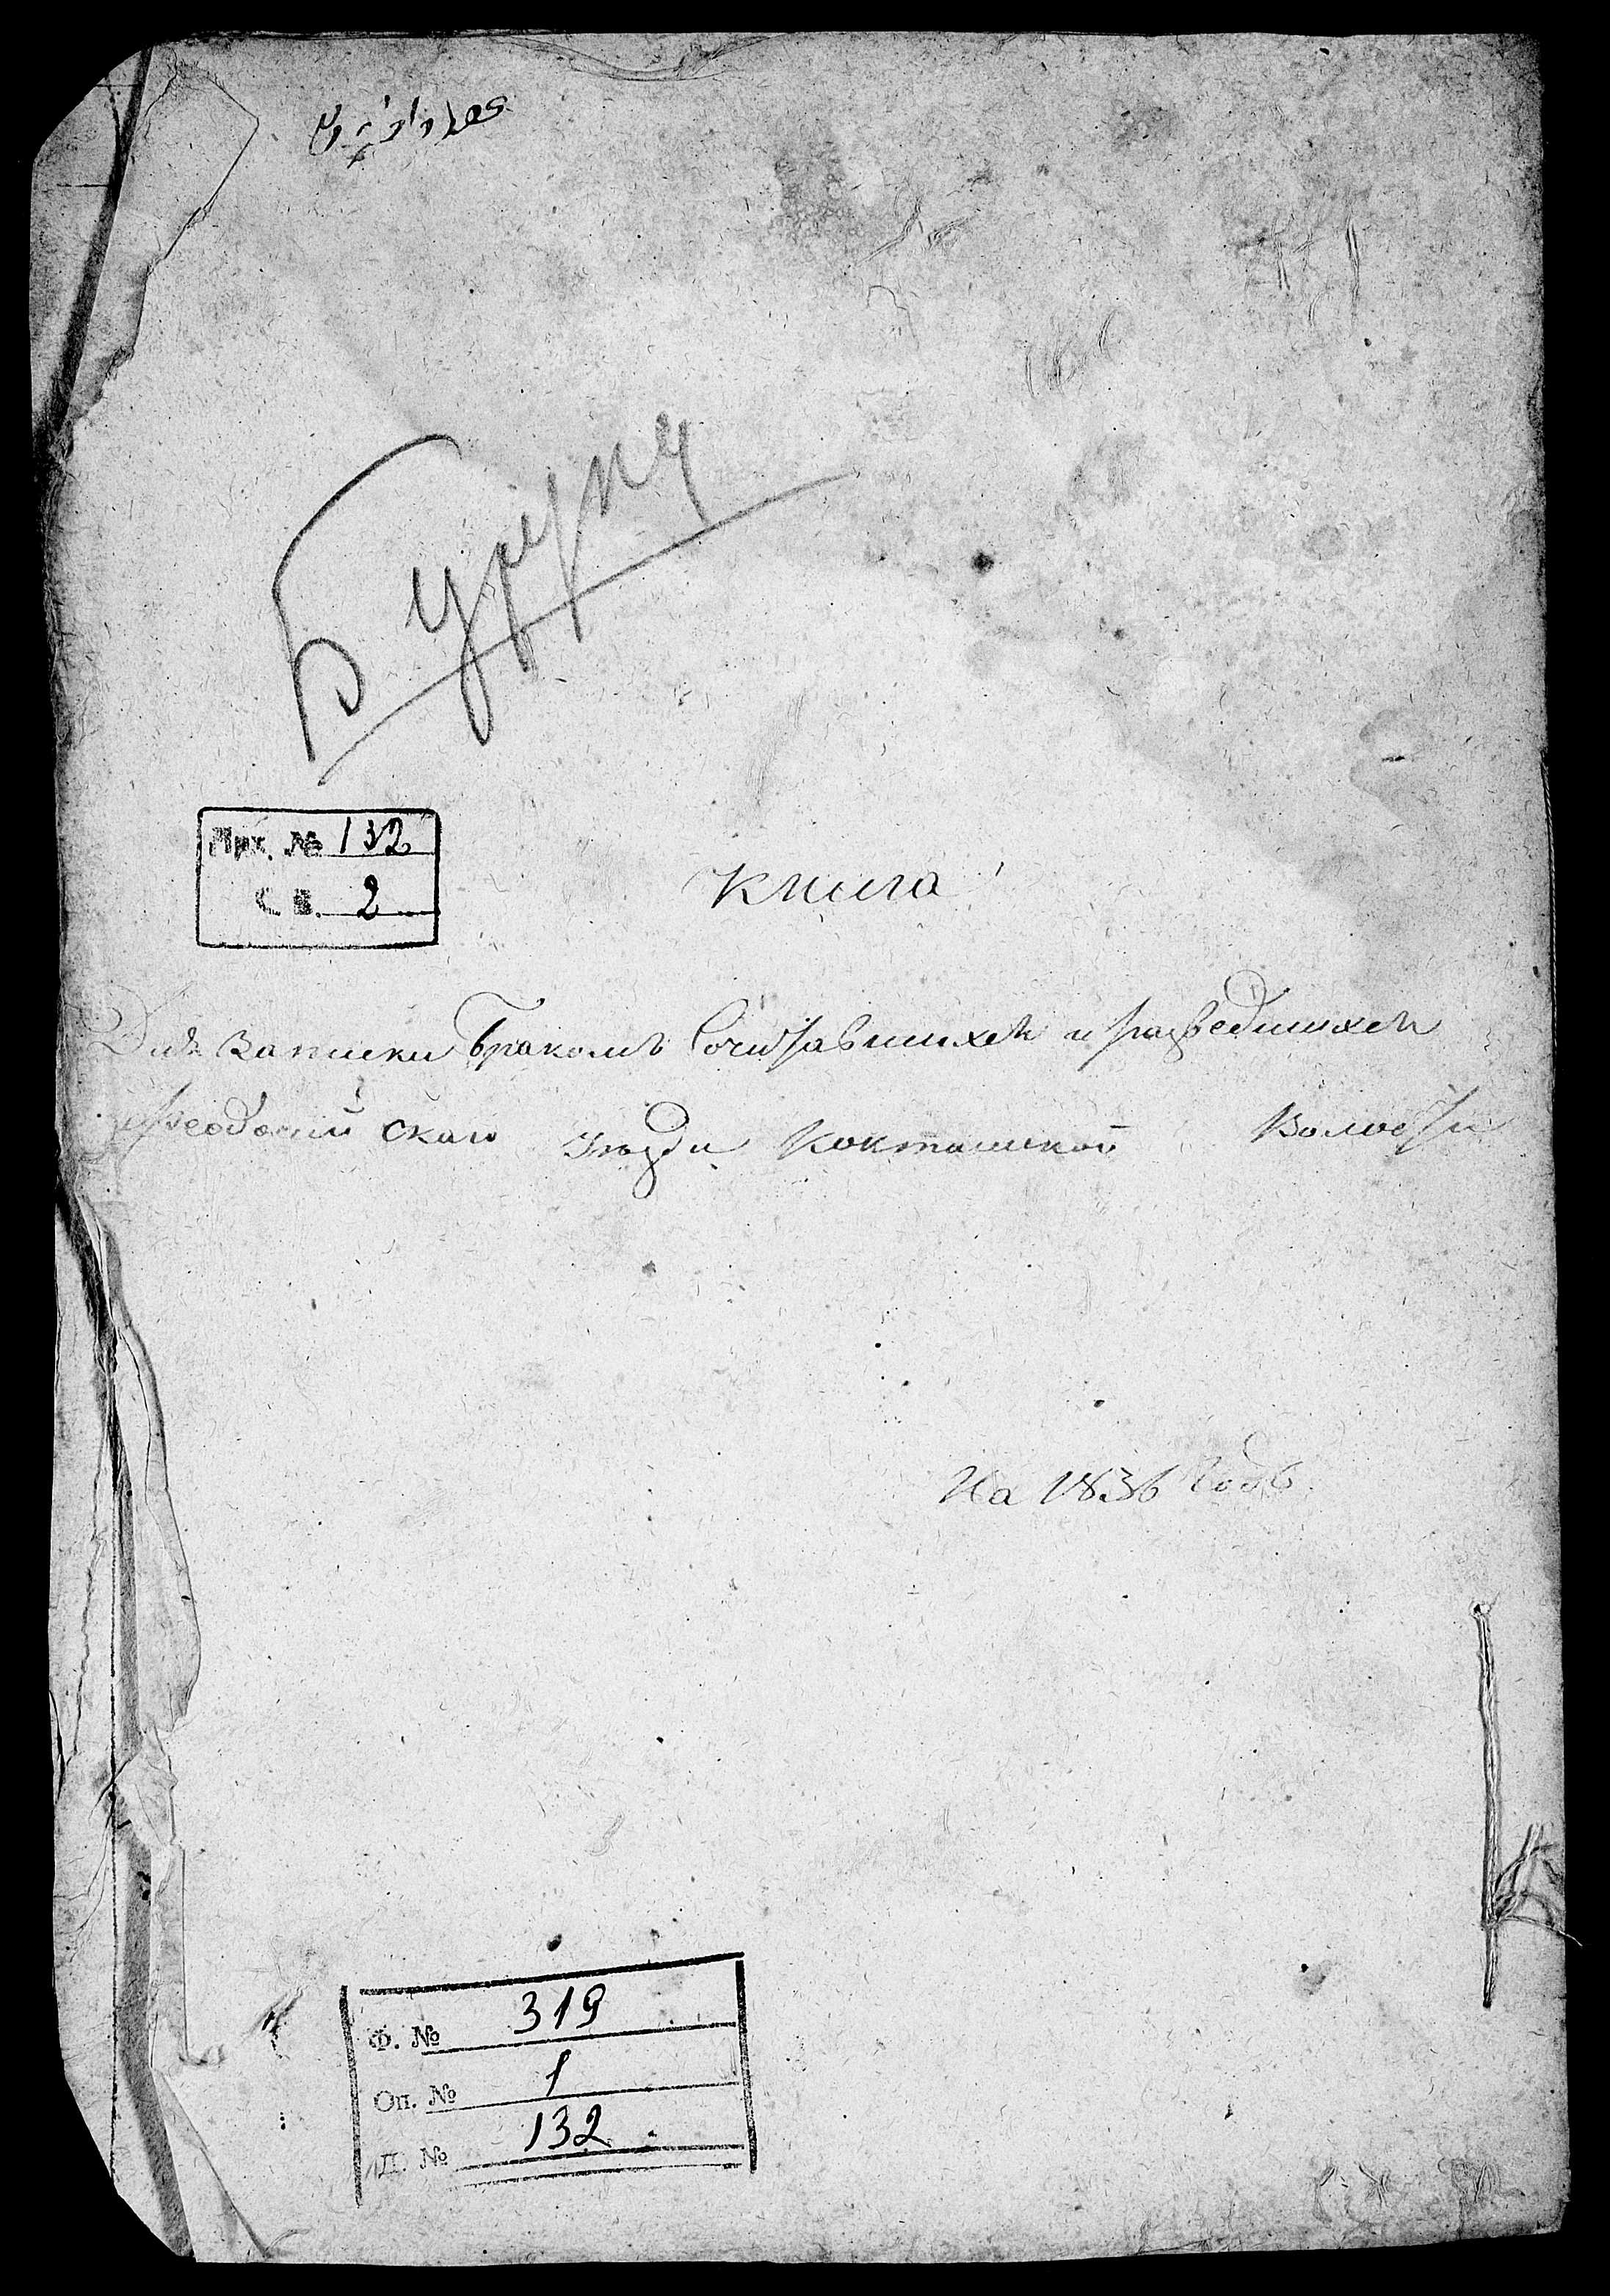 Бурунч
Арх. № 132
С В. 2
Книга
Для Записки Бракомъ Сочитавшихся и разведшихся
Феодосийскаго Уезда Кокташской Волости
На 1836 Годъ.
Ф. № 319
Оп. № 1
Д. № 132